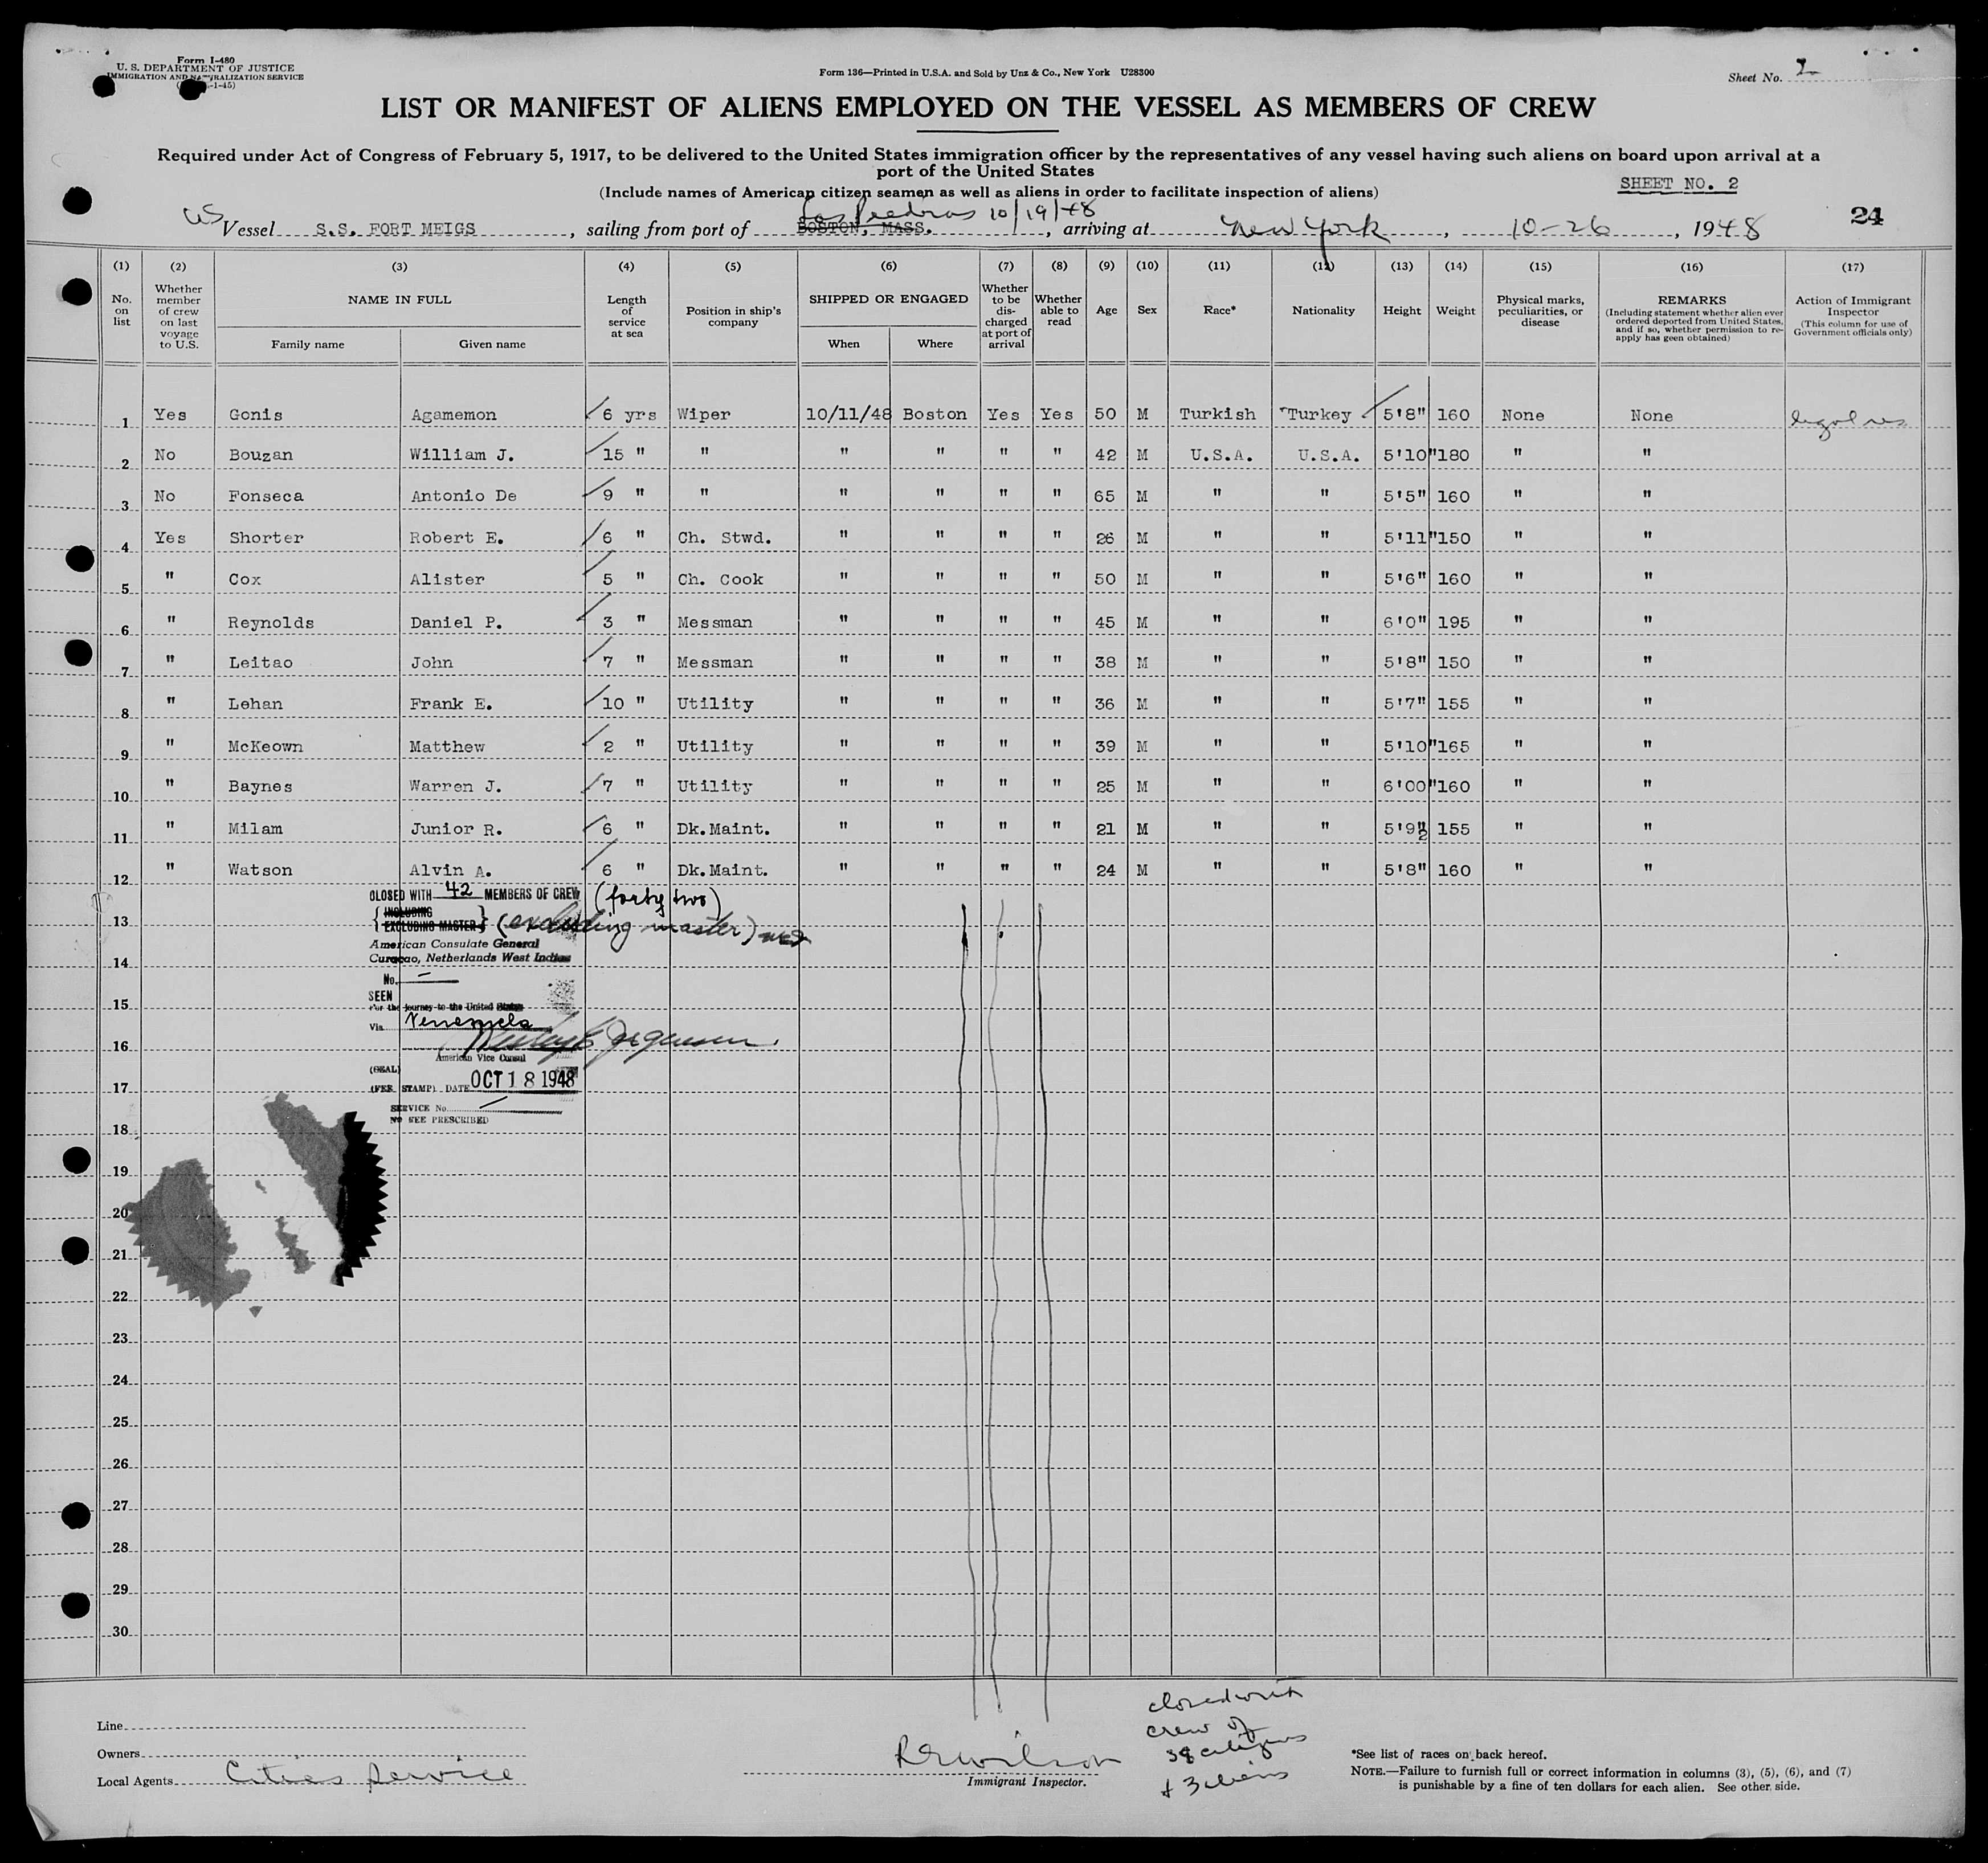 Form I-480
U. S. DEPARTMENT OF JUSTICE
IMMIGRATION AND NATURALIZATION SERVICE
-1-45)
Form 136—Printed in U.S.A. and Sold by Unz & Co., New York U28300
Sheet No. 2
LIST OR MANIFEST OF ALIENS EMPLOYED ON THE VESSEL AS MEMBERS OF CREW
Required under Act of Congress of February 5, 1917, to be delivered to the United States immigration officer by the representatives of any vessel having such aliens on board upon arrival at a
port of the United States
(Include names of American citizen seamen as well as aliens in order to facilitate inspection of aliens)
SHEET NO. 2
Las Piedras 10/19/48
US Vessel S.S. FORT MEIGS, sailing from port of BOSTON, MASS., arriving at New York, 10-26, 1948
24
(1) (2) (3) (4) (5) (6) (7) (8) (9) (10) (11) (12) (13) (14) (15) (16) (17)
No. on list
Whether member of crew on last voyage to U.S.
NAME IN FULL
Family name
Given name
Length of service at sea
Position in ship's company
SHIPPED OR ENGAGED
When
Where
Whether to be discharged at port of arrival
Whether able to read
Age
Sex
Race*
Nationality
Height
Weight
Physical marks, peculiarities, or disease
REMARKS
(Including statement whether alien ever ordered deported from United States, and if so, whether permission to re-apply has geen obtained)
Action of Immigrant Inspector
(This column for use of Government officials only)
1 Yes Gonis Agamemon 6 yrs Wiper 10/11/48 Boston Yes Yes 50 M Turkish Turkey 5'8" 160 None None legal res
2 No Bouzan William J. 15 " " " " " " 42 M U.S.A. U.S.A. 5'10" 180 " "
3 No Fonseca Antonio De 9 " " " " " " 65 M " " 5'5" 160 " "
4 Yes Shorter Robert E. 6 " Ch. Stwd. " " " " 26 M " " 5'11" 150 " "
5 " Cox Alister 5 " Ch. Cook " " " " 50 M " " 5'6" 160 " "
6 " Reynolds Daniel P. 3 " Messman " " " " 45 M " " 6'0" 195 " "
7 " Leitao John 7 " Messman " " " " 38 M " " 5'8" 150 " "
8 " Lehan Frank E. 10 " Utility " " " " 36 M " " 5'7" 155 " "
9 " McKeown Matthew 2 " Utility " " " " 39 M " " 5'10" 165 " "
10 " Baynes Warren J. 7 " Utility " " " " 25 M " " 6'00" 160 " "
11 " Milam Junior R. 6 " Dk.Maint. " " " " 21 M " " 5'9" 155 " "
12 " Watson Alvin A. 6 " Dk.Maint. " " " " 24 M " " 5'8" 160 " "
CLOSED WITH 42 MEMBERS OF CREW (forty two)
INCLUDING
EXCLUDING MASTER (excluding master)
American Consulate General
Curaçao, Netherlands West Indies
No. —
SEEN
For the journey to the United States
Via Venezuela
American Vice Consul
(SEAL)
(FEE STAMP) DATE OCT 18 1948
SERVICE No.
NO FEE PRESCRIBED
13
14
15
16
17
18
19
20
21
22
23
24
25
26
27
28
29
30
Line
Owners
Local Agents Cities Service
R E Wilson
Immigrant Inspector.
closed with
crew of
38 citizens
+ 3 aliens
*See list of races on back hereof.
NOTE.—Failure to furnish full or correct information in columns (3), (5), (6), and (7)
is punishable by a fine of ten dollars for each alien. See other side.